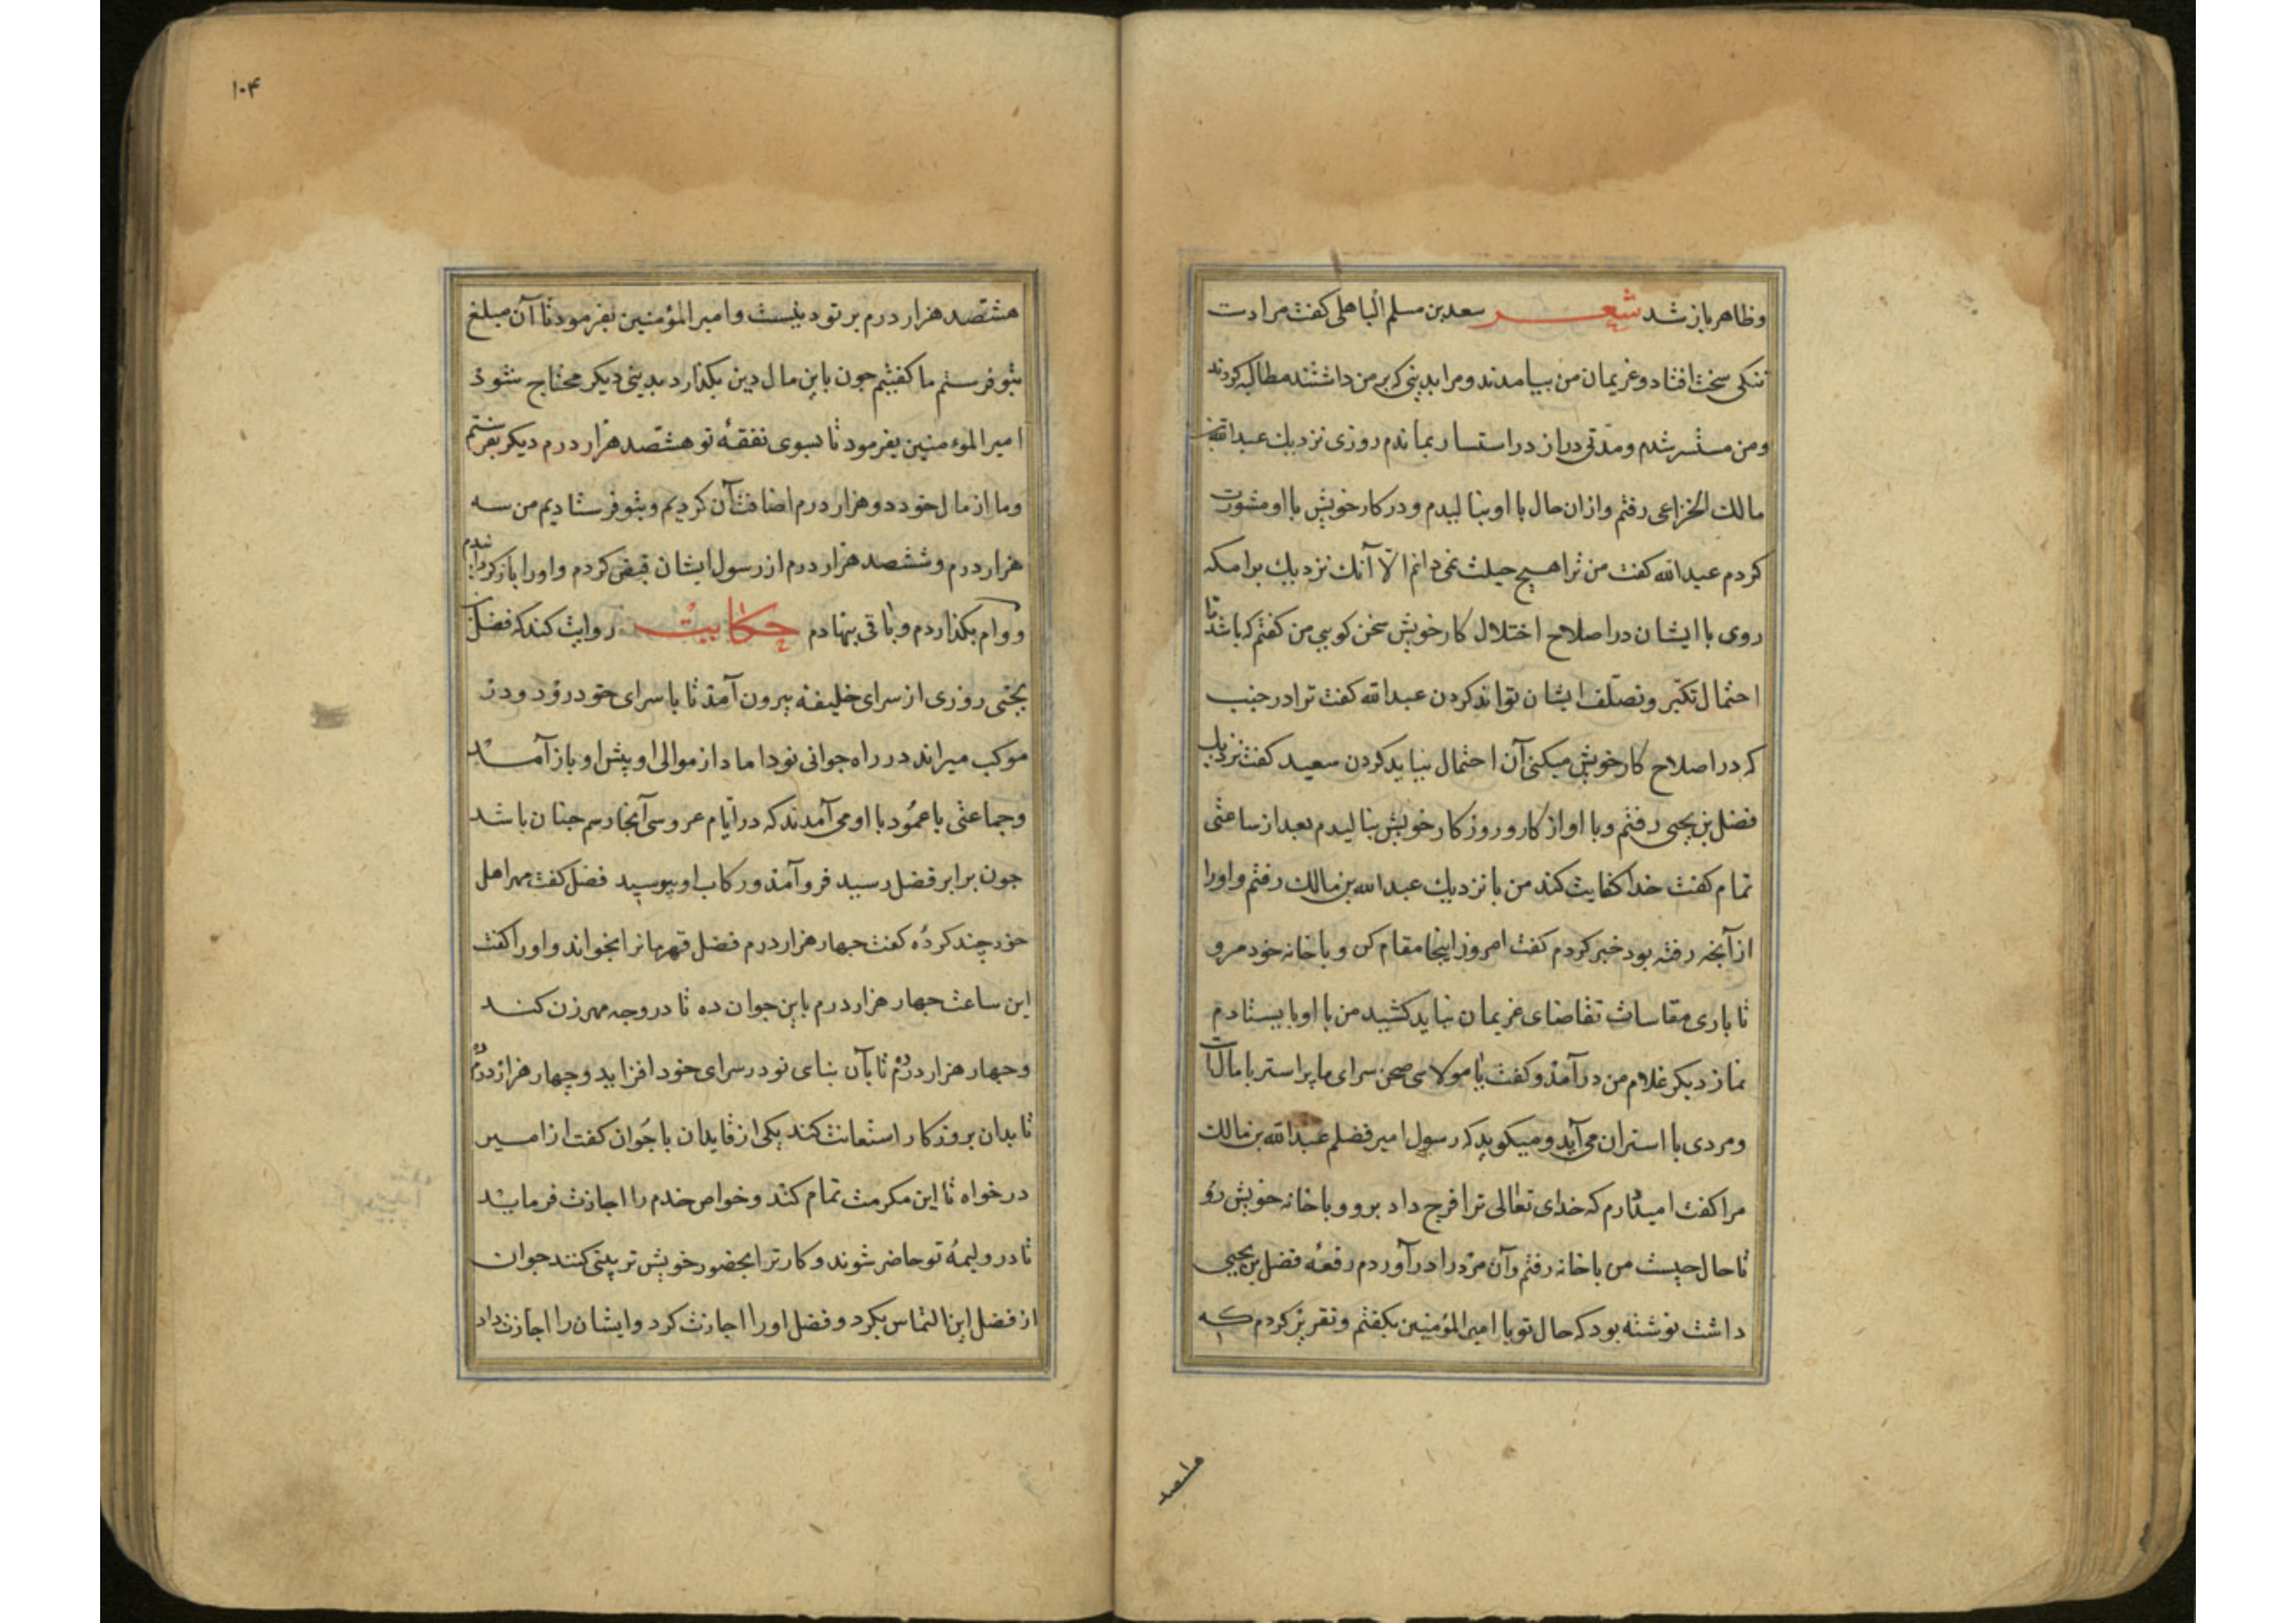 وظاهر باز شد شعر سعد بن مسلم الباهلی کفت مرا دست
تنکی سخت افتاد و غریمان من بیامدند و مرا بدینی که بر من داشتند مطالبه کردند
ومن مستتر شدم و مدّتی دراز در استتار بماندم روزی نزدیک عبدالله بن
مالک الخزاعی رفتم وازان حال با او بنالیدم و در کار خویش با او مشورت
کردم عبدالله کفت من ترا هیچ حیلت نمی دانم الّا آنک نزدیک برامکه
روی با ایشان در اصلاح اختلال کار خویش سخن کویی من کفتم که باشد تا
احتمال تکبّر و تصلّف ایشان تواند کردن عبدالله کفت ترا در جنب
که در اصلاح کار خویش میکنی آن احتمال بباید کردن سعید کفت نزدیک
فضل بن یحیی رفتم و با او از کار و روزکار خویش بنالیدم بعد از ساعتی
تمام کفت خدا کفایت کند من با نزدیک عبدالله بن مالک رفتم و اورا
از آنچه رفته بود خبر کردم کفت امروز اینجا مقام کن و با خانه خود مرو
تا باری مقاسات تقاضای غریمان نباید کشید من با او بایستادم
نماز دیکر غلام من درآمد و کفت یا مولای صحن سرای ما پر استر با مالست
ومردی با استران می آید و میکوید که رسول امیر فضلم عبدالله بن مالک
مرا کفت امیدوارم که خدای تعالی ترا فرج داد برو و با خانه خویش رو
تا حال چیست من با خانه رفتم و آن مرد را درآوردم رقعه فضل بن یحیی
داشت نوشته بود که حال تو با امیرالمؤمنین بکفتم و تقریر کردم که
۱۰۴
هشتصد هزار درم بر تو دینست و امیرالمؤمنین بفرمود تا آن مبلغ
بتو فرستم ما کفتیم چون باین مال دین بکذارد بدینی دیکر محتاج شود
امیرالمؤمنین بفرمود تا بسوی نفقهٔ تو هشتصد هزار درم دیکر بفرستم
وما از مال خود دو هزار درم اضافت آن کردیم و بتو فرستادیم من سه
هزار درم و ششصد هزار درم از رسول ایشان قبض کردم و اورا بازکردانیدم
و وام بکذاردم و باقی بنهادم حکایت روایت کند که فضل
یحیی روزی از سرای خلیفه بیرون آمد تا با سرای خود رود و در
موکب میراند در راه جوانی نو داماد از موالی او پیش او باز آمد
وجماعتی با عمود با او می آمدند که در ایّام عروسی آنجا رسم چنان باشد
چون برابر فضل رسید فرو آمد و رکاب او ببوسید فضل کفت مهر اهل
خود چند کرده کفت چهار هزار درم فضل قهرمانرا بخواند و اورا کفت
این ساعت چهار هزار درم باین جوان ده تا در وجه مهر زن کند
و چهار هزار درم ده تا بآن بنای نو در سرای خود افزاید و چهار هزار درم ده
تا بدان بروزکار استعانت کند یکی از قایدان با جوان کفت از امیر
درخواه تا این مکرمت تمام کند و خواص خدم را اجازت فرماید
تا در ولیمهٔ تو حاضر شوند و کار ترا بحضور خویش تزیینی کنند جوان
از فضل این التماس بکرد و فضل اورا اجازت کرد و ایشان را اجازت داد